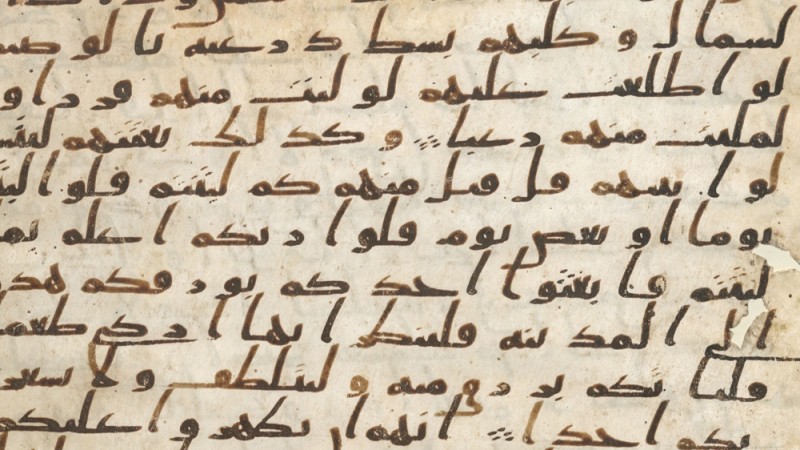 لشمال و كلبهم بسط ذرعيه بالوصيد
لو اطلعت عليهم لوليت منهم فررا و
لملئت منهم رعبا و كذلك بعثنهم ليتسا
لوا بينهم قل قئل منهم كم لبثتم قلوا لبثنا
يوما او بعض يوم قلوا ربكم اعلم بما
لبثتم فابعثوا احدكم بورقكم هذه
الى المدينه فلينظر ايها ازكى طعما
فلياتكم برزق منه و ليتلطف ولا يشعرن
بكم احدا انهم ان يظهروا عليكم